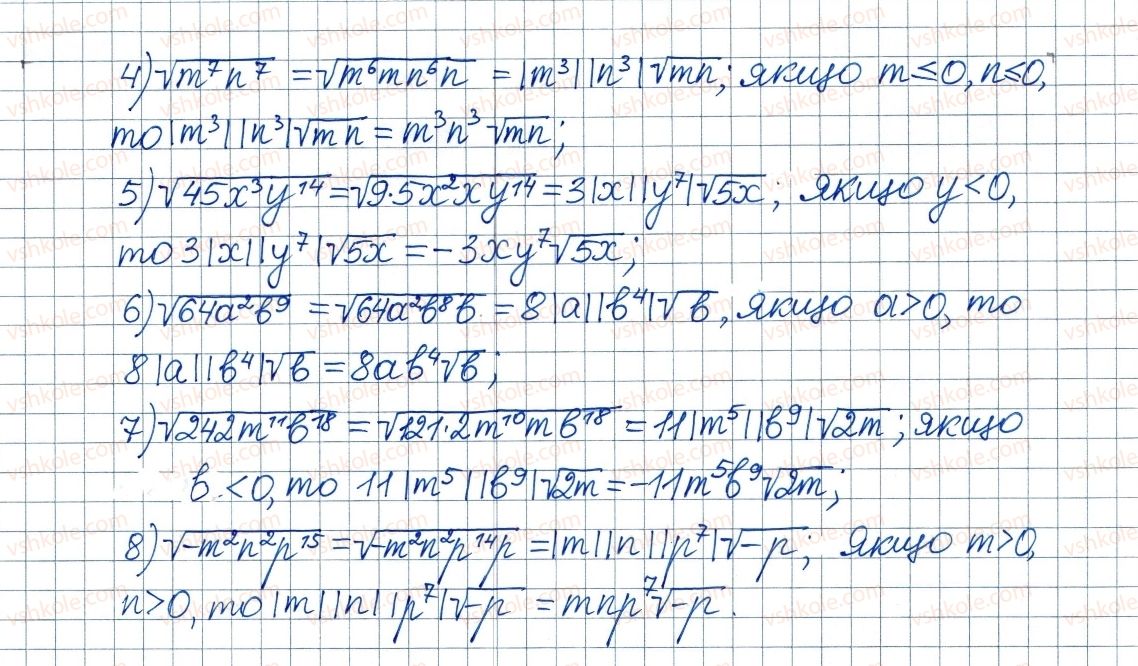 4) √m⁷n⁷ = √m⁶mn⁶n = |m³||n³|√mn; якщо m≤0, n≤0,
то |m³||n³|√mn = m³n³√mn;
5) √45x³y¹⁴ = √9·5x²xy¹⁴ = 3|x||y⁷|√5x; якщо y<0,
то 3|x||y⁷|√5x = -3xy⁷√5x;
6) √64a²b⁹ = √64a²b⁸b = 8|a||b⁴|√b, якщо a>0, то
8|a||b⁴|√b = 8ab⁴√b;
7) √242m¹¹b¹⁸ = √121·2m¹⁰mb¹⁸ = 11|m⁵||b⁹|√2m; якщо
b<0, то 11|m⁵||b⁹|√2m = -11m⁵b⁹√2m;
8) √-m²n²p¹⁵ = √-m²n²p¹⁴p = |m||n||p⁷|√-p; якщо m>0,
n>0, то |m||n||p⁷|√-p = mnp⁷√-p.